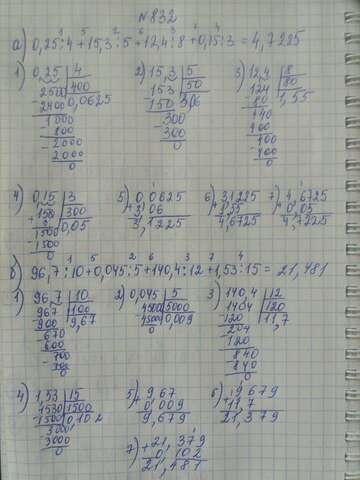 №832
а) 0,25:4+15,3:5+12,4:8+0,15:3=4,7225
1) 0,25 | 4
2500 | 400
2400 0,0625
1000
800
2000
2000
0
2) 15,3 | 5
153 | 50
150 3,06
300
300
0
3) 12,4 | 8
124 | 80
80 1,55
440
400
400
400
0
4) 0,15 | 3
150 | 300
1500 0,05
1500
0
5) 0,0625
+ 3,06
3,1225
6) 3,1225
+ 1,55
4,6725
7) 4,6725
+ 0,05
4,7225
б) 96,7:10+0,045:5+140,4:12+1,53:15=21,481
1) 96,7 | 10
967 | 100
900 9,67
670
600
700
700
0
2) 0,045 | 5
4500 | 5000
45000 0,009
0
3) 140,4 | 12
1404 | 120
120 11,7
204
120
840
840
0
4) 1,53 | 15
1530 | 1500
1500 0,102
3000
3000
0
5) 9,67
+ 0,009
9,679
6) 9,679
+ 11,7
21,379
7) 21,379
+ 0,102
21,481